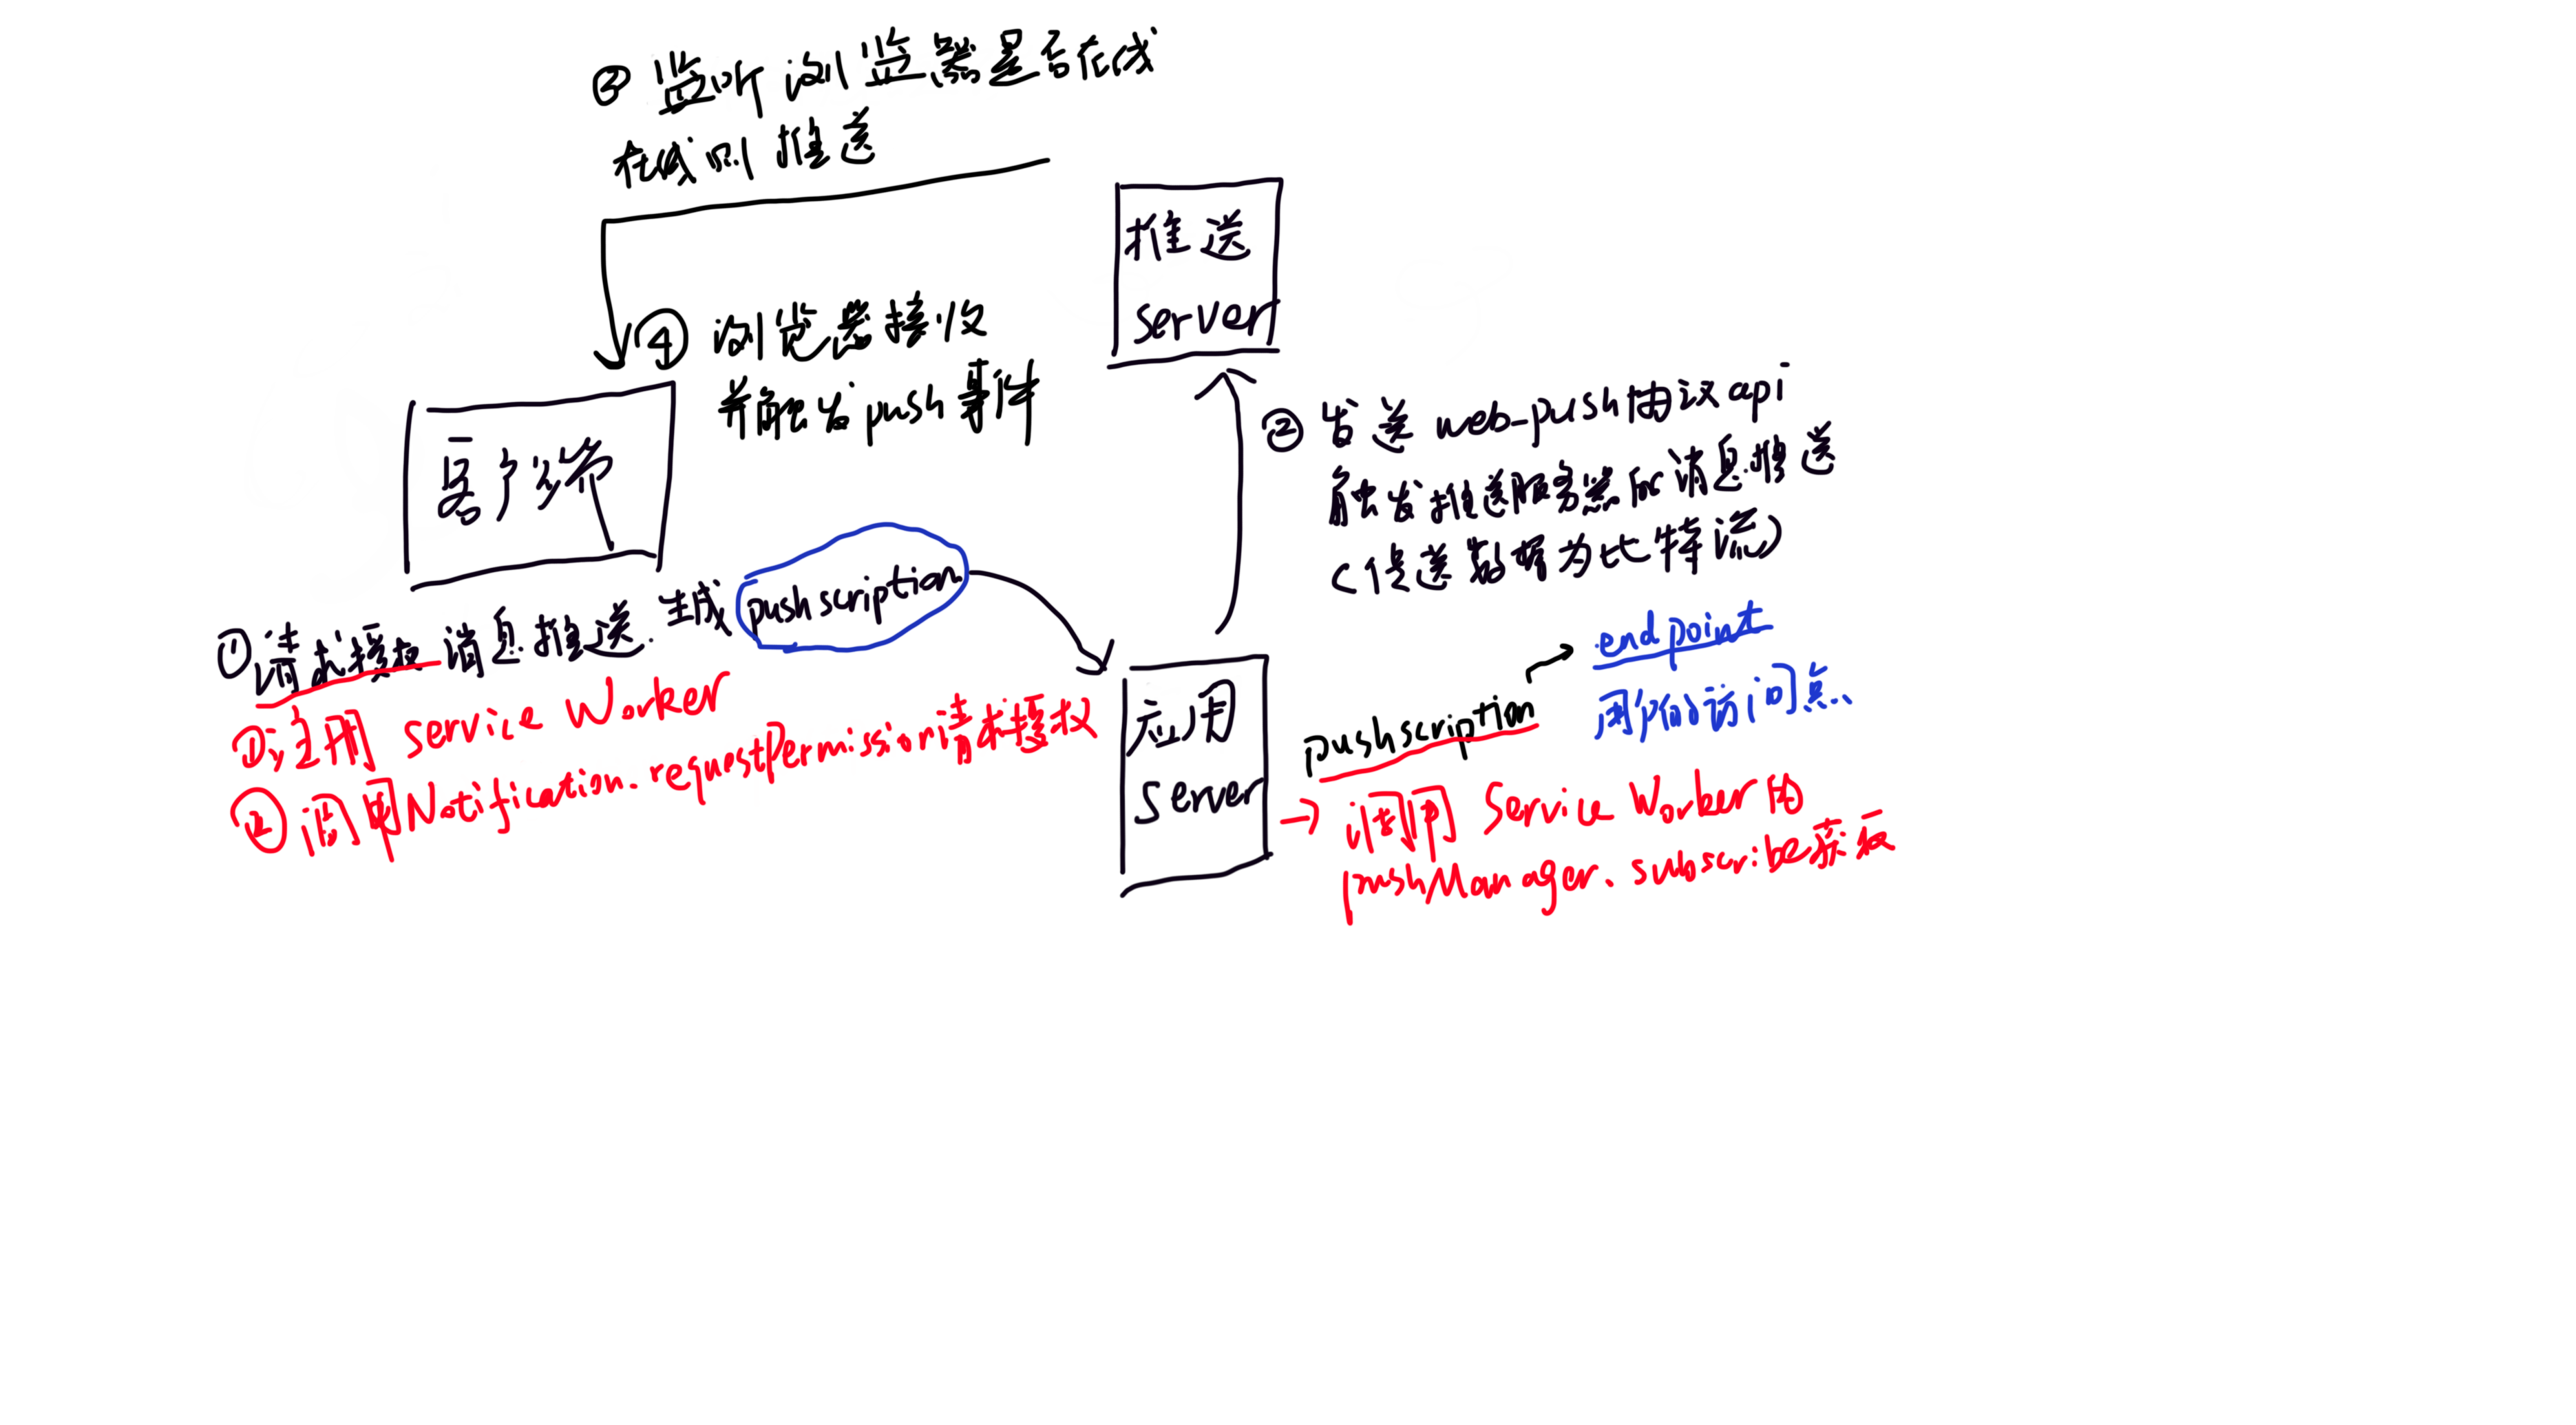 ③ 监听浏监器是否在线
在线则推送
推送
server
④ 浏览器接收
并触发push事件
客户端
② 发送web-push协议api
触发推送服务器的消息推送
(传送数据为比特流)
①请求授权消息推送.生成pushscription
①注册 service Worker
②调用Notification.requestPermission请求授权
应用
Server
endpoint
用户的访问点
pushscription
→调用 Service Worker的
pushManager.subscribe获取